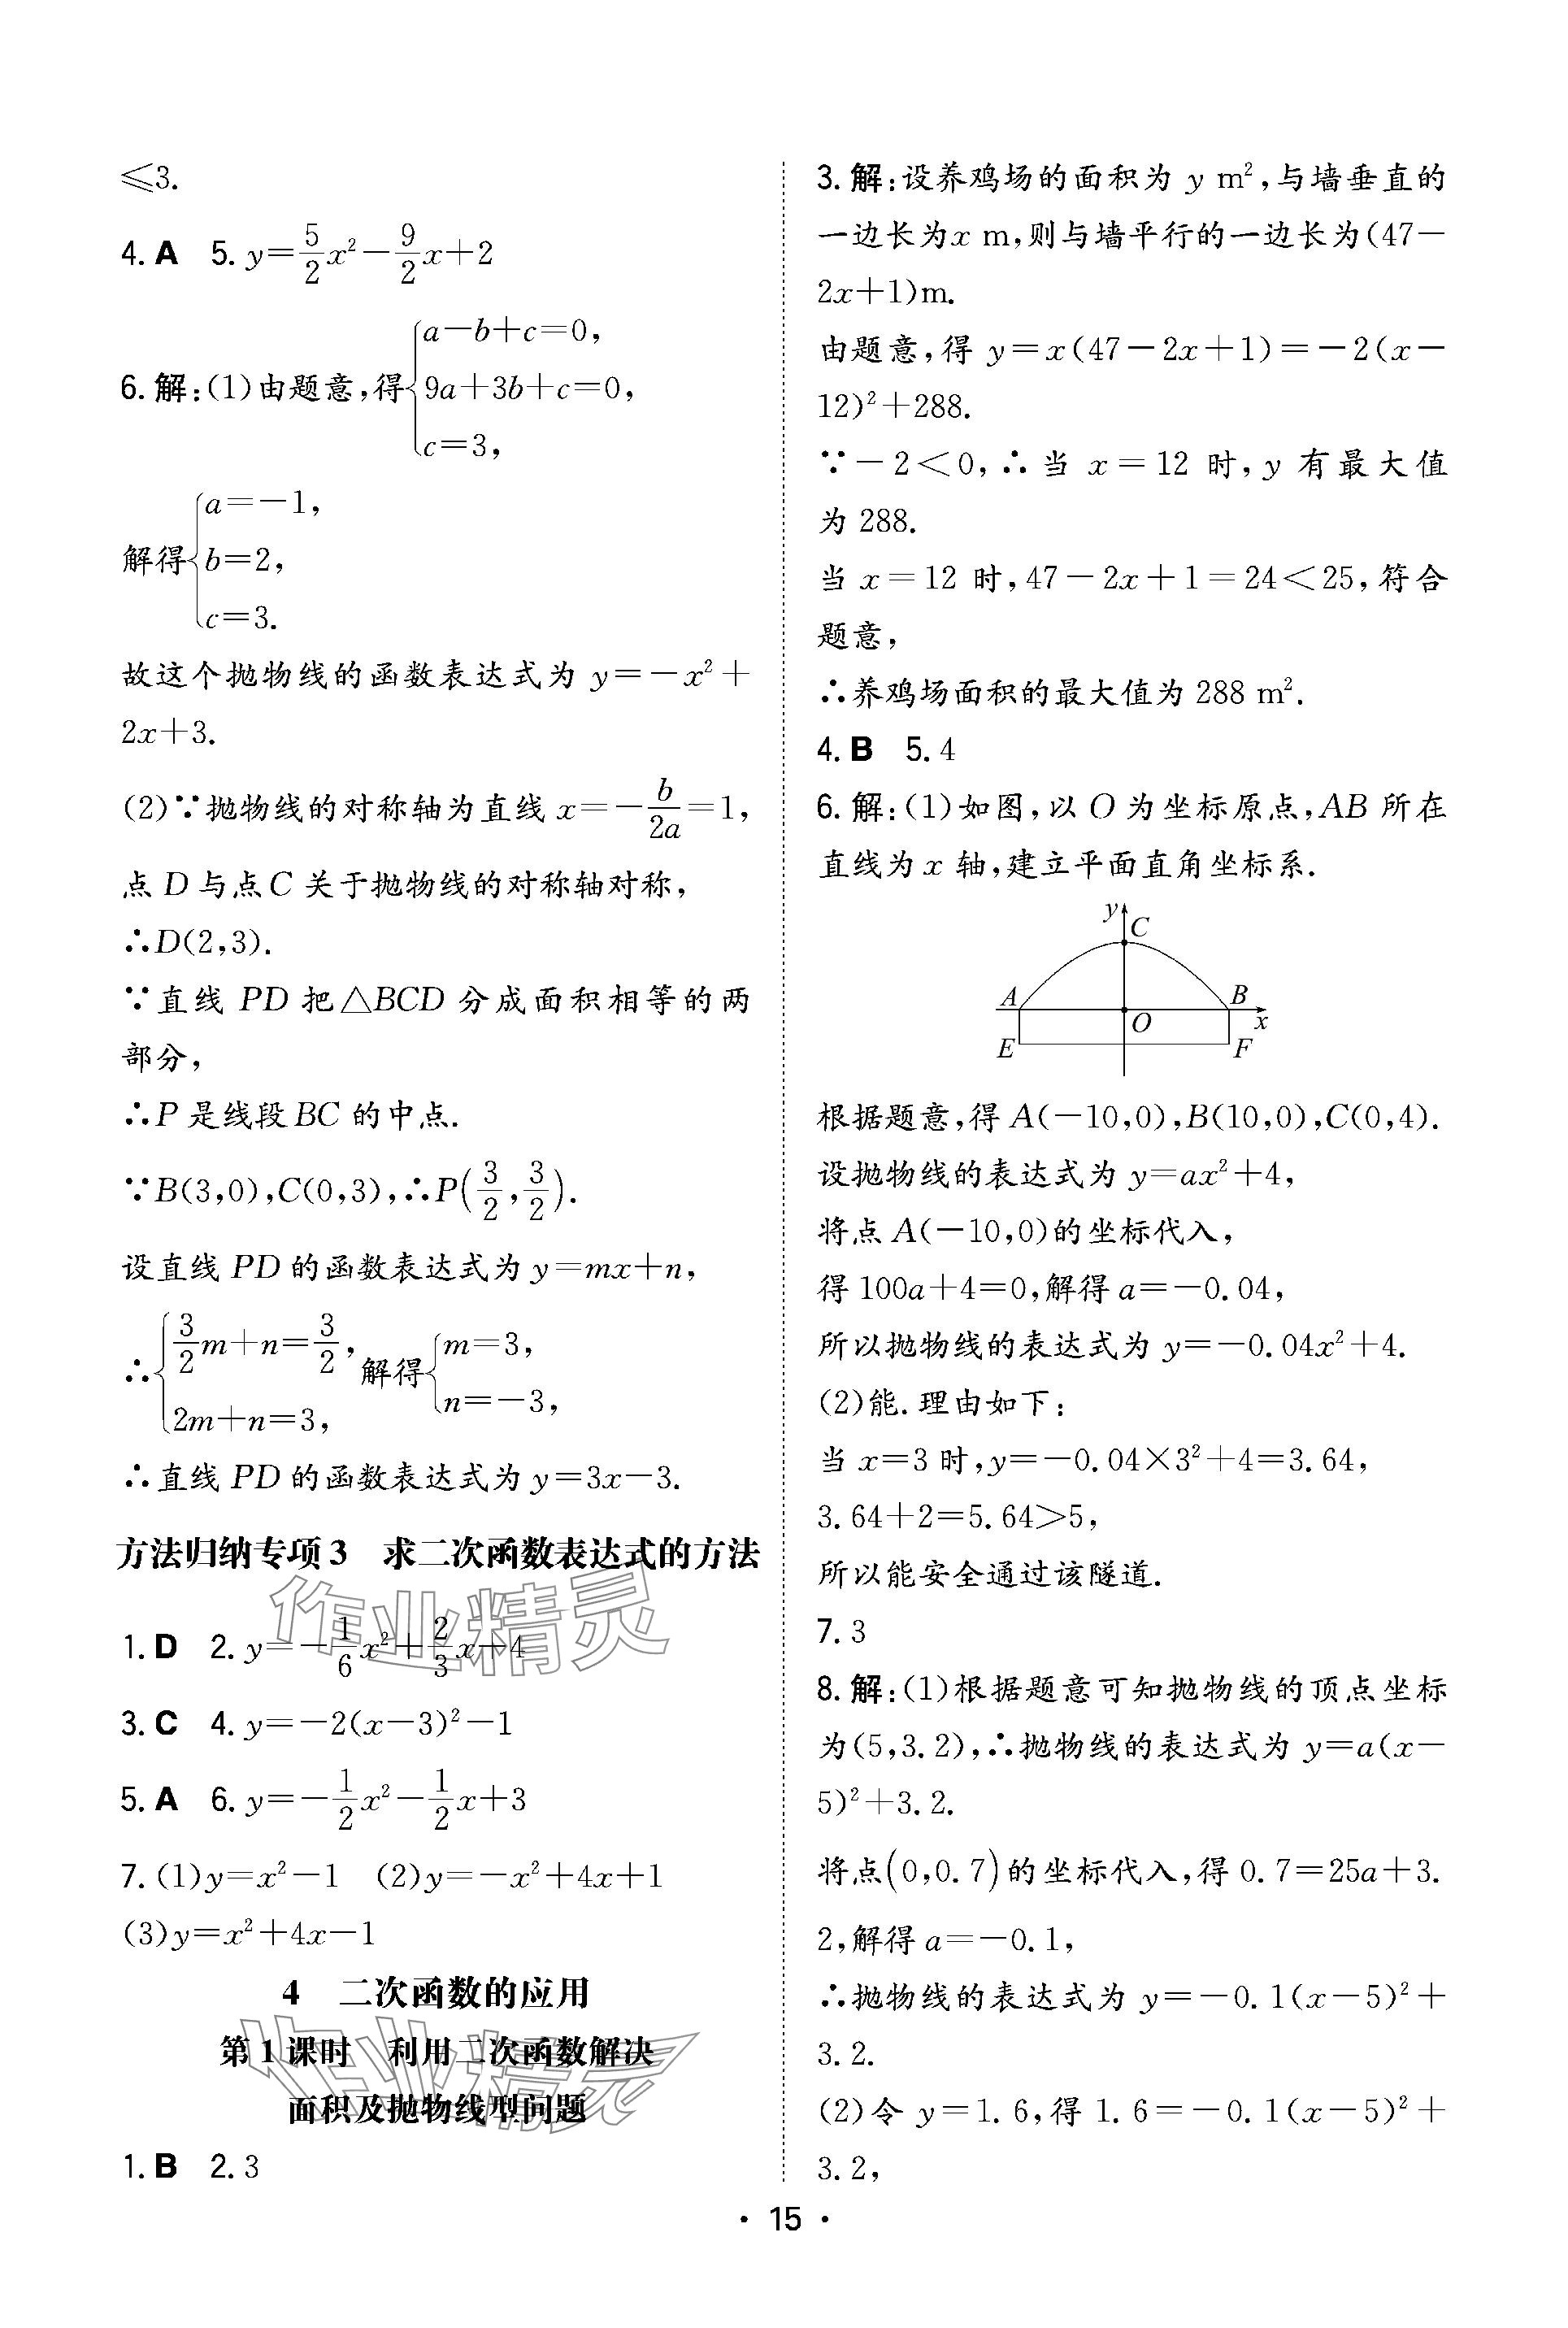 ≤3.
4. A 5. y=5/2x²-9/2x+2
6. 解:(1)由题意,得{a-b+c=0,
9a+3b+c=0,
c=3,
解得{a=-1,
b=2,
c=3.
故这个抛物线的函数表达式为 y=-x²+
2x+3.
(2)∵抛物线的对称轴为直线 x=-b/2a=1,
点 D 与点 C 关于抛物线的对称轴对称,
∴D(2,3).
∵直线 PD 把△BCD 分成面积相等的两
部分,
∴P 是线段 BC 的中点.
∵B(3,0),C(0,3),∴P(3/2,3/2).
设直线 PD 的函数表达式为 y=mx+n,
∴{3/2m+n=3/2,
2m+n=3,
解得{m=3,
n=-3,
∴直线 PD 的函数表达式为 y=3x-3.
方法归纳专项3 求二次函数表达式的方法
1. D 2. y=-1/6x²+2/3x+4
3. C 4. y=-2(x-3)²-1
5. A 6. y=-1/2x²-1/2x+3
7. (1)y=x²-1 (2)y=-x²+4x+1
(3)y=x²+4x-1
4 二次函数的应用
第1课时 利用二次函数解决
面积及抛物线型问题
1. B 2. 3
3. 解:设养鸡场的面积为 y m²,与墙垂直的
一边长为x m,则与墙平行的一边长为(47-
2x+1)m.
由题意,得 y=x(47-2x+1)=-2(x-
12)²+288.
∵-2<0,∴当 x=12 时,y 有最大值
为 288.
当 x=12 时,47-2x+1=24<25,符合
题意,
∴养鸡场面积的最大值为 288 m².
4. B 5. 4
6. 解:(1)如图,以 O 为坐标原点,AB 所在
直线为 x 轴,建立平面直角坐标系.
y
C
A
B
O
x
E
F
根据题意,得 A(-10,0),B(10,0),C(0,4).
设抛物线的表达式为 y=ax²+4,
将点 A(-10,0)的坐标代入,
得 100a+4=0,解得 a=-0.04,
所以抛物线的表达式为 y=-0.04x²+4.
(2)能.理由如下:
当 x=3 时,y=-0.04×3²+4=3.64,
3.64+2=5.64>5,
所以能安全通过该隧道.
7. 3
8. 解:(1)根据题意可知抛物线的顶点坐标
为(5,3.2),∴抛物线的表达式为 y=a(x-
5)²+3.2.
将点(0,0.7)的坐标代入,得 0.7=25a+3.
2,解得 a=-0.1,
∴抛物线的表达式为 y=-0.1(x-5)²+
3.2.
(2)令 y=1.6,得 1.6=-0.1(x-5)²+
3.2,
作业精灵
作业精灵
• 15 •